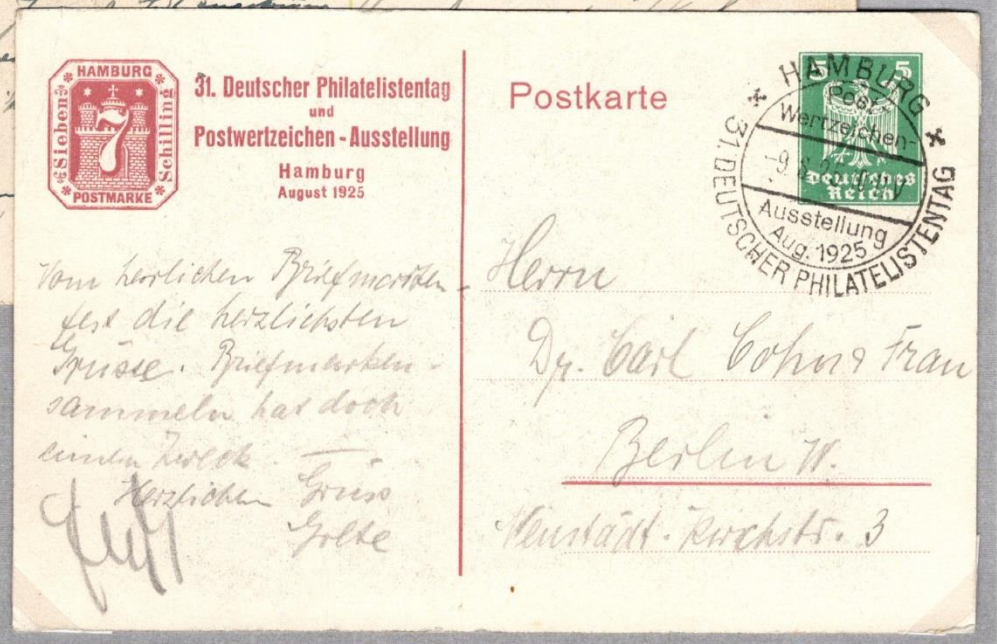 HAMBURG
Sieben
7
Schilling
POSTMARKE
31. Deutscher Philatelistentag
und
Postwertzeichen-Ausstellung
Hamburg
August 1925
Postkarte
5 5
Deutsches
Reich
HAMBURG
Post-
Wertzeichen-
Ausstellung
Aug. 1925
31. DEUTSCHER PHILATELISTENTAG
Vom herrlichen Briefmarken-
fest die herzlichsten
Grüsse. Briefmarken-
sammeln hat doch
einen Zweck. —
Herzlichen Gruss
Herrn
Dr. Carl Cohn & Frau
Berlin W.
Neustädt. Kirchstr. 3